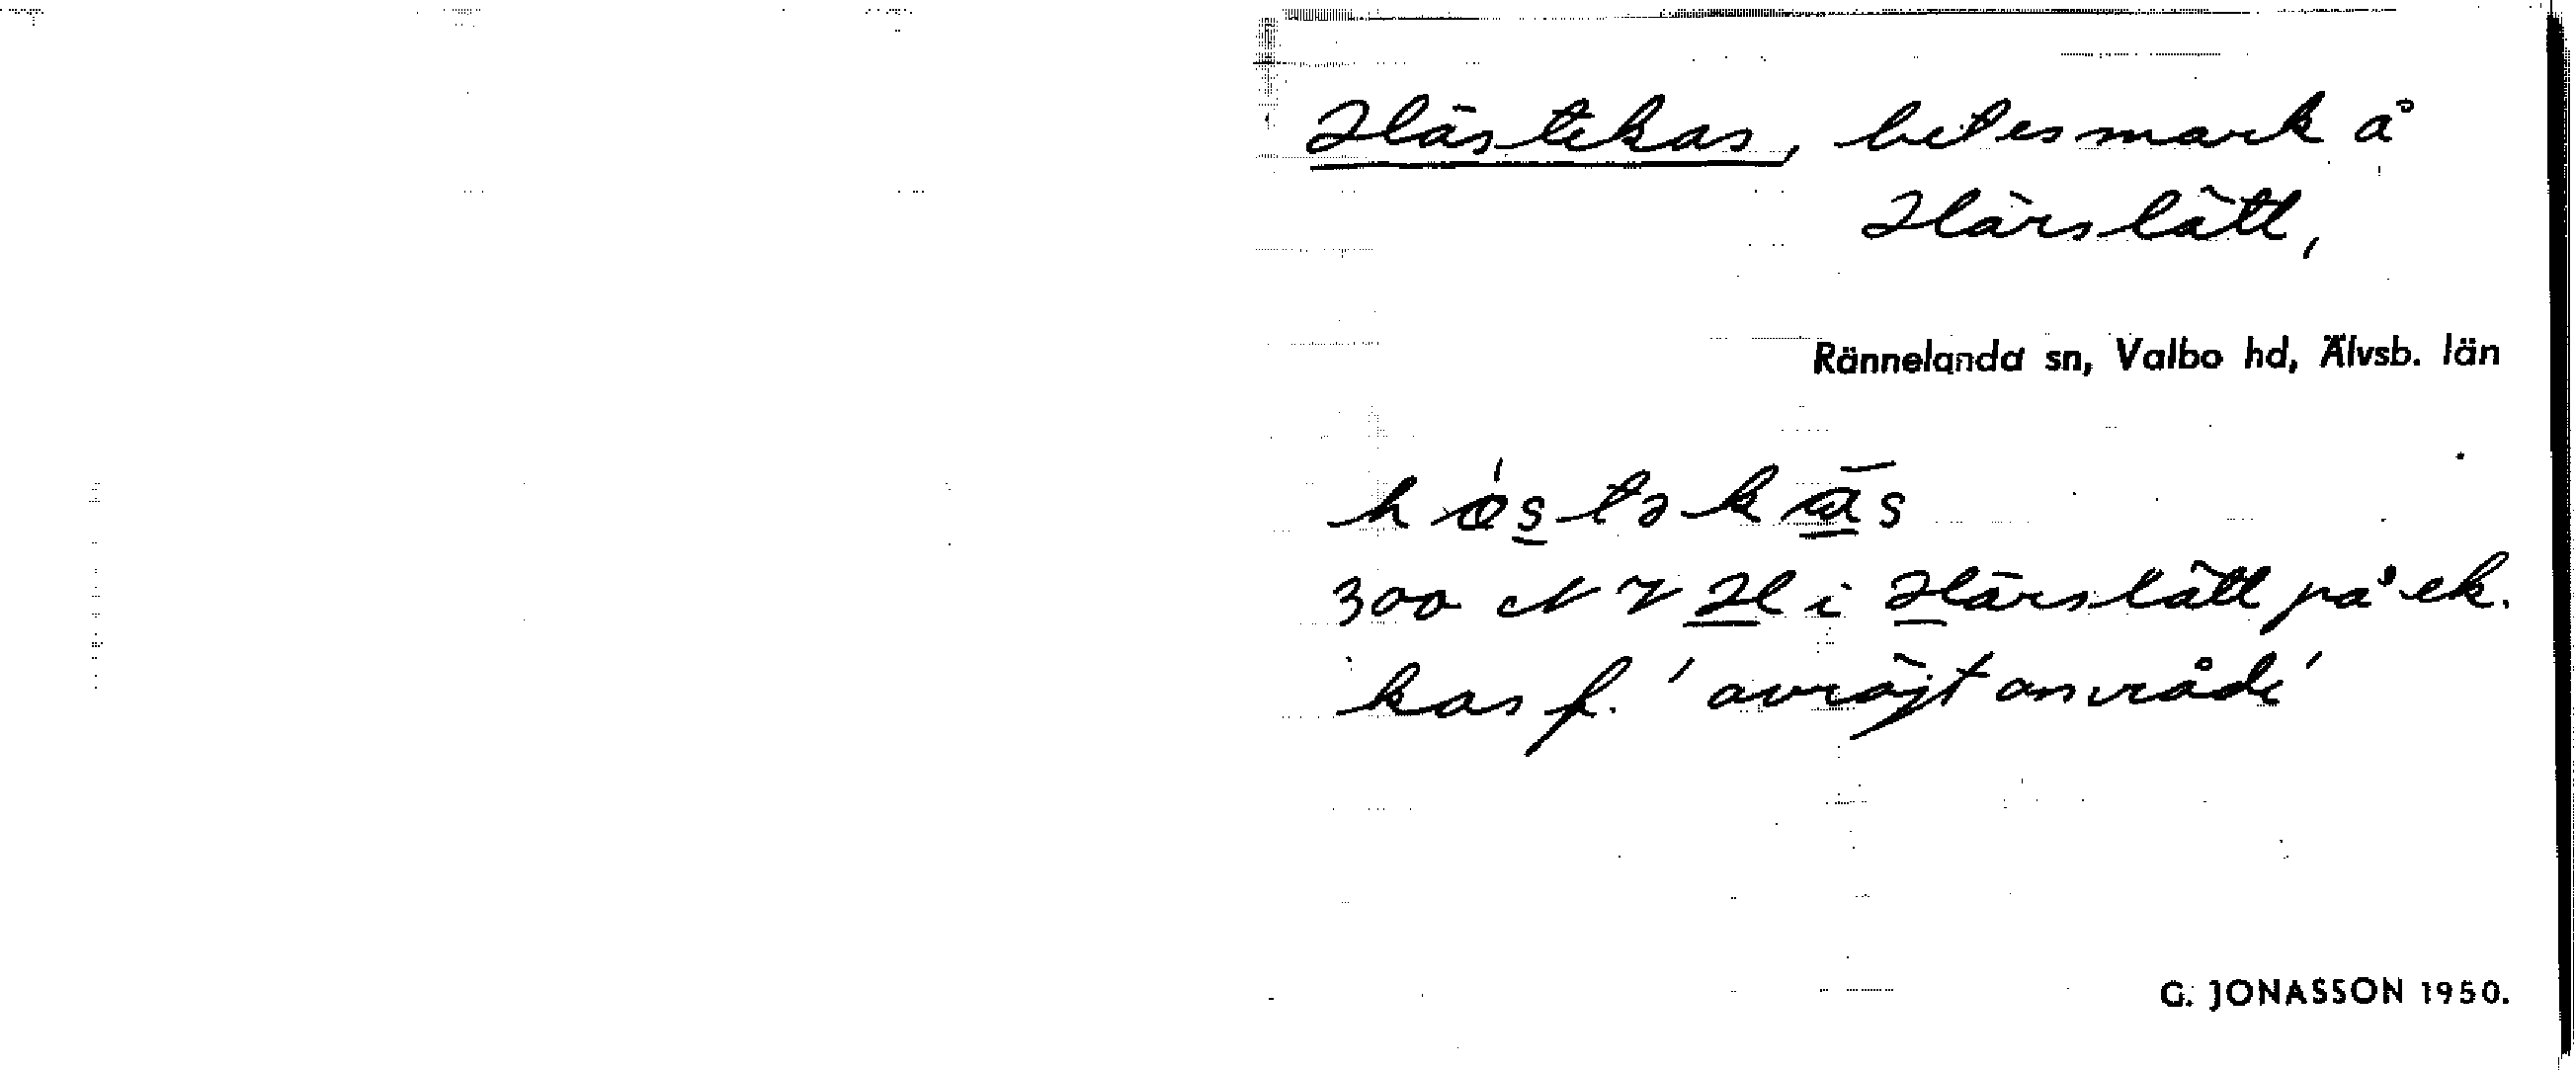 Hästekas, betesmark å
Härslätt,
Rännelanda sn, Valbo hd, Älvsb. län
hö́stəkās
300 NV H i Härslätt på ek.
kas f. 'avröjt område'
G. JONASSON 1950.